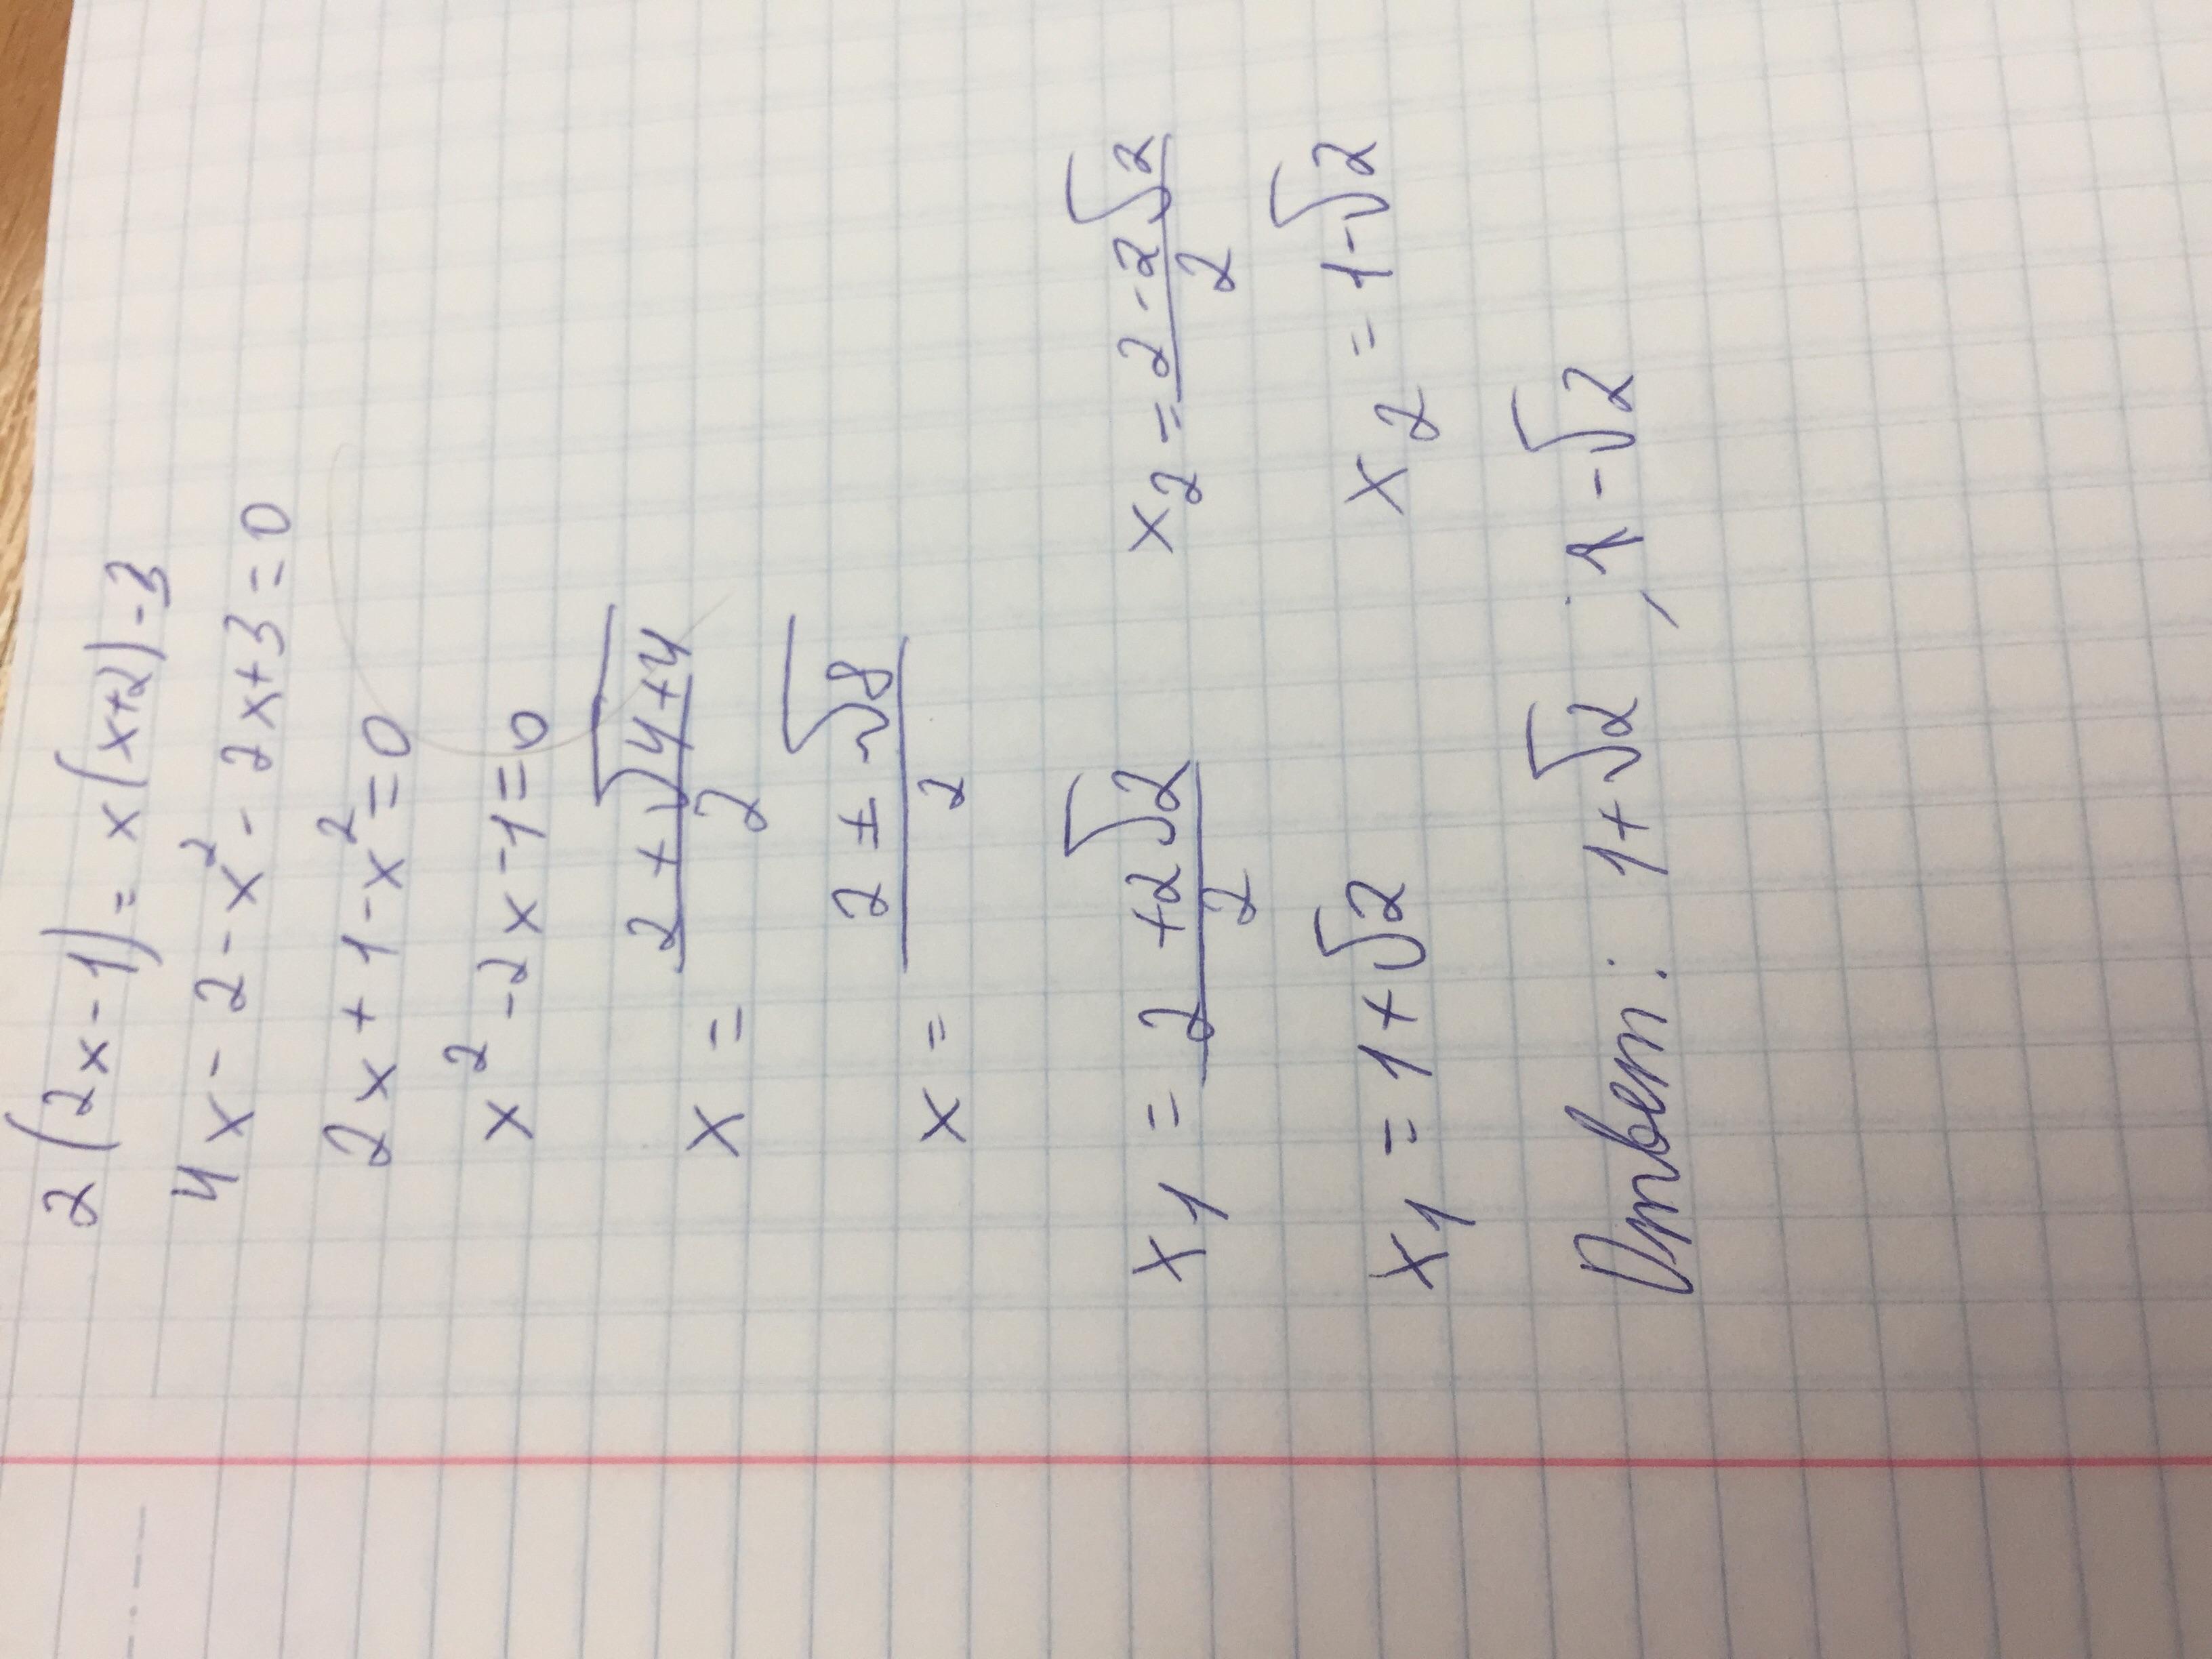 2(2x-1)=x(x+2)-3
4x-2-x²-2x+3=0
2x+1-x²=0
x²-2x-1=0
x = (2+√(4+4))/2
x = (2±√8)/2
x₁ = (2+2√2)/2 x₂ = (2-2√2)/2
x₁ = 1+√2 x₂ = 1-√2
Ответ: 1+√2 ; 1-√2